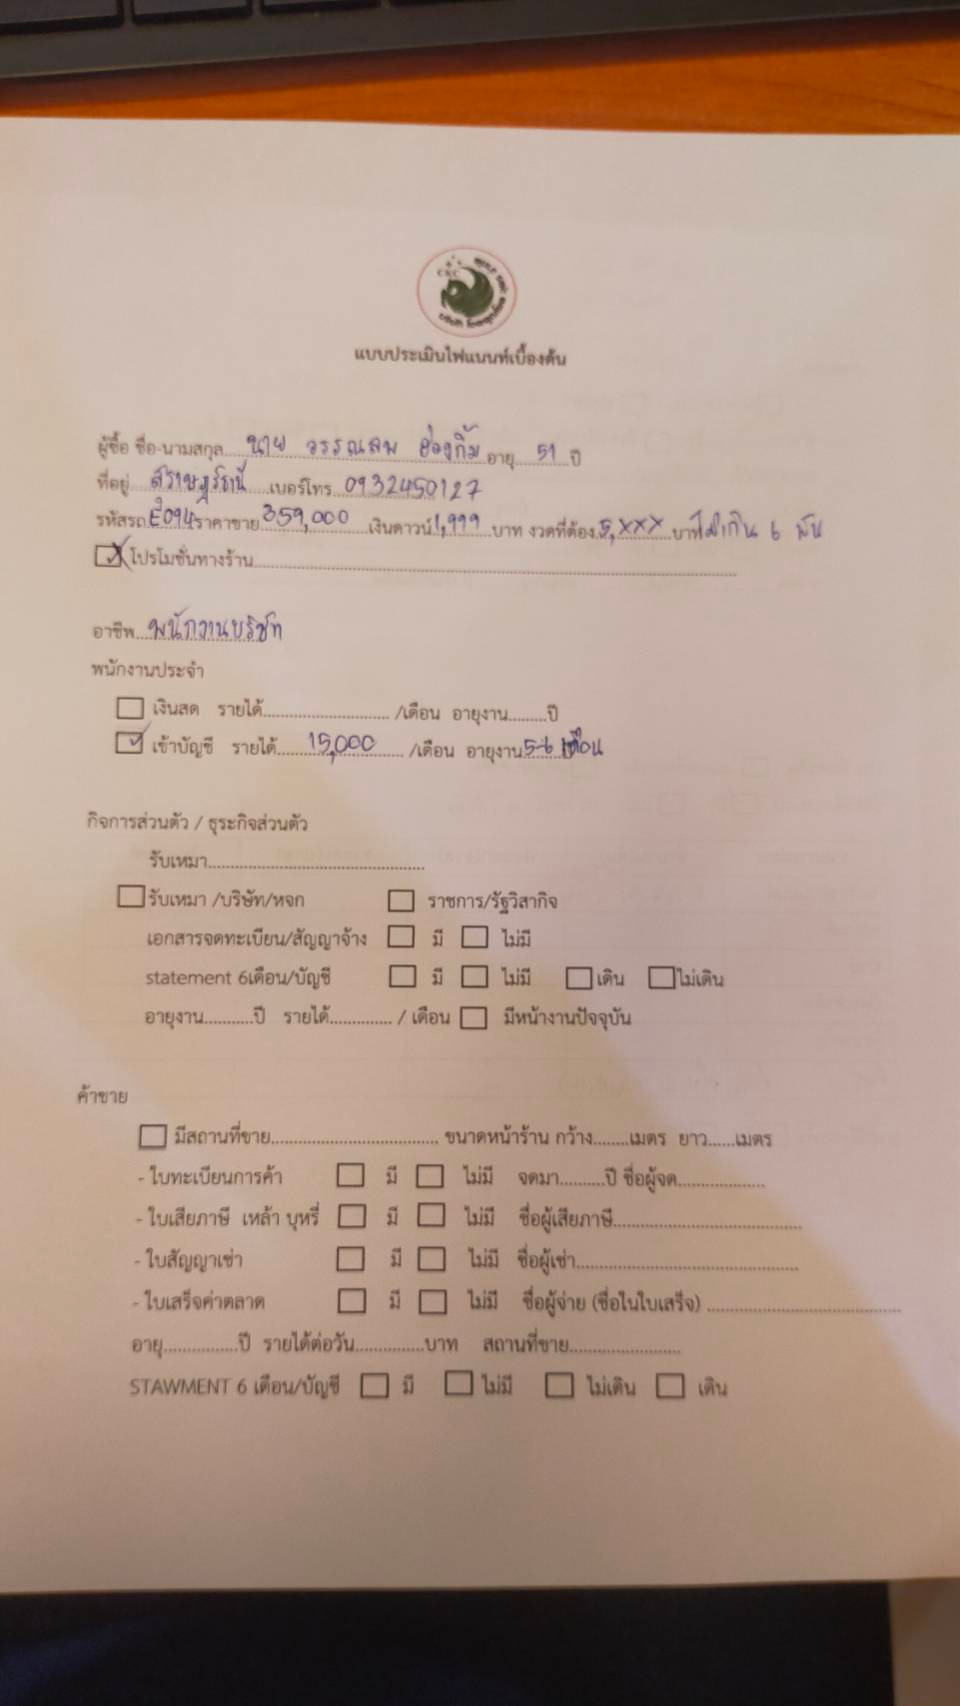 CKC
แบบประเมินไฟแนนท์เบื้องต้น
ผู้ซื้อ ชื่อ-นามสกุล นาย วรรณลพ ฮ่องกิ้ม อายุ 51 ปี
ที่อยู่ สุราษฎร์ธานี เบอร์โทร 0932450127
รหัสรถ E094 ราคาขาย 359,000 เงินดาวน์ 1,999 บาท งวดที่ต้อง 5,xxx บาท ไม่เกิน 6 พัน
โปรโมชั่นทางร้าน
อาชีพ พนักงานบริษัท
พนักงานประจำ
เงินสด รายได้ /เดือน อายุงาน ปี
เข้าบัญชี รายได้ 15,000 /เดือน อายุงาน 5-6 เดือน
กิจการส่วนตัว / ธุระกิจส่วนตัว
รับเหมา
รับเหมา /บริษัท/หจก ราชการ/รัฐวิสากิจ
เอกสารจดทะเบียน/สัญญาจ้าง มี ไม่มี
statement 6เดือน/บัญชี มี ไม่มี เดิน ไม่เดิน
อายุงาน ปี รายได้ / เดือน มีหน้างานปัจจุบัน
ค้าขาย
มีสถานที่ขาย ขนาดหน้าร้าน กว้าง เมตร ยาว เมตร
- ใบทะเบียนการค้า มี ไม่มี จดมา ปี ชื่อผู้จด
- ใบเสียภาษี เหล้า บุหรี่ มี ไม่มี ชื่อผู้เสียภาษี
- ใบสัญญาเช่า มี ไม่มี ชื่อผู้เช่า
- ใบเสร็จค่าตลาด มี ไม่มี ชื่อผู้จ่าย (ชื่อในใบเสร็จ)
อายุ ปี รายได้ต่อวัน บาท สถานที่ขาย
STAWMENT 6 เดือน/บัญชี มี ไม่มี ไม่เดิน เดิน